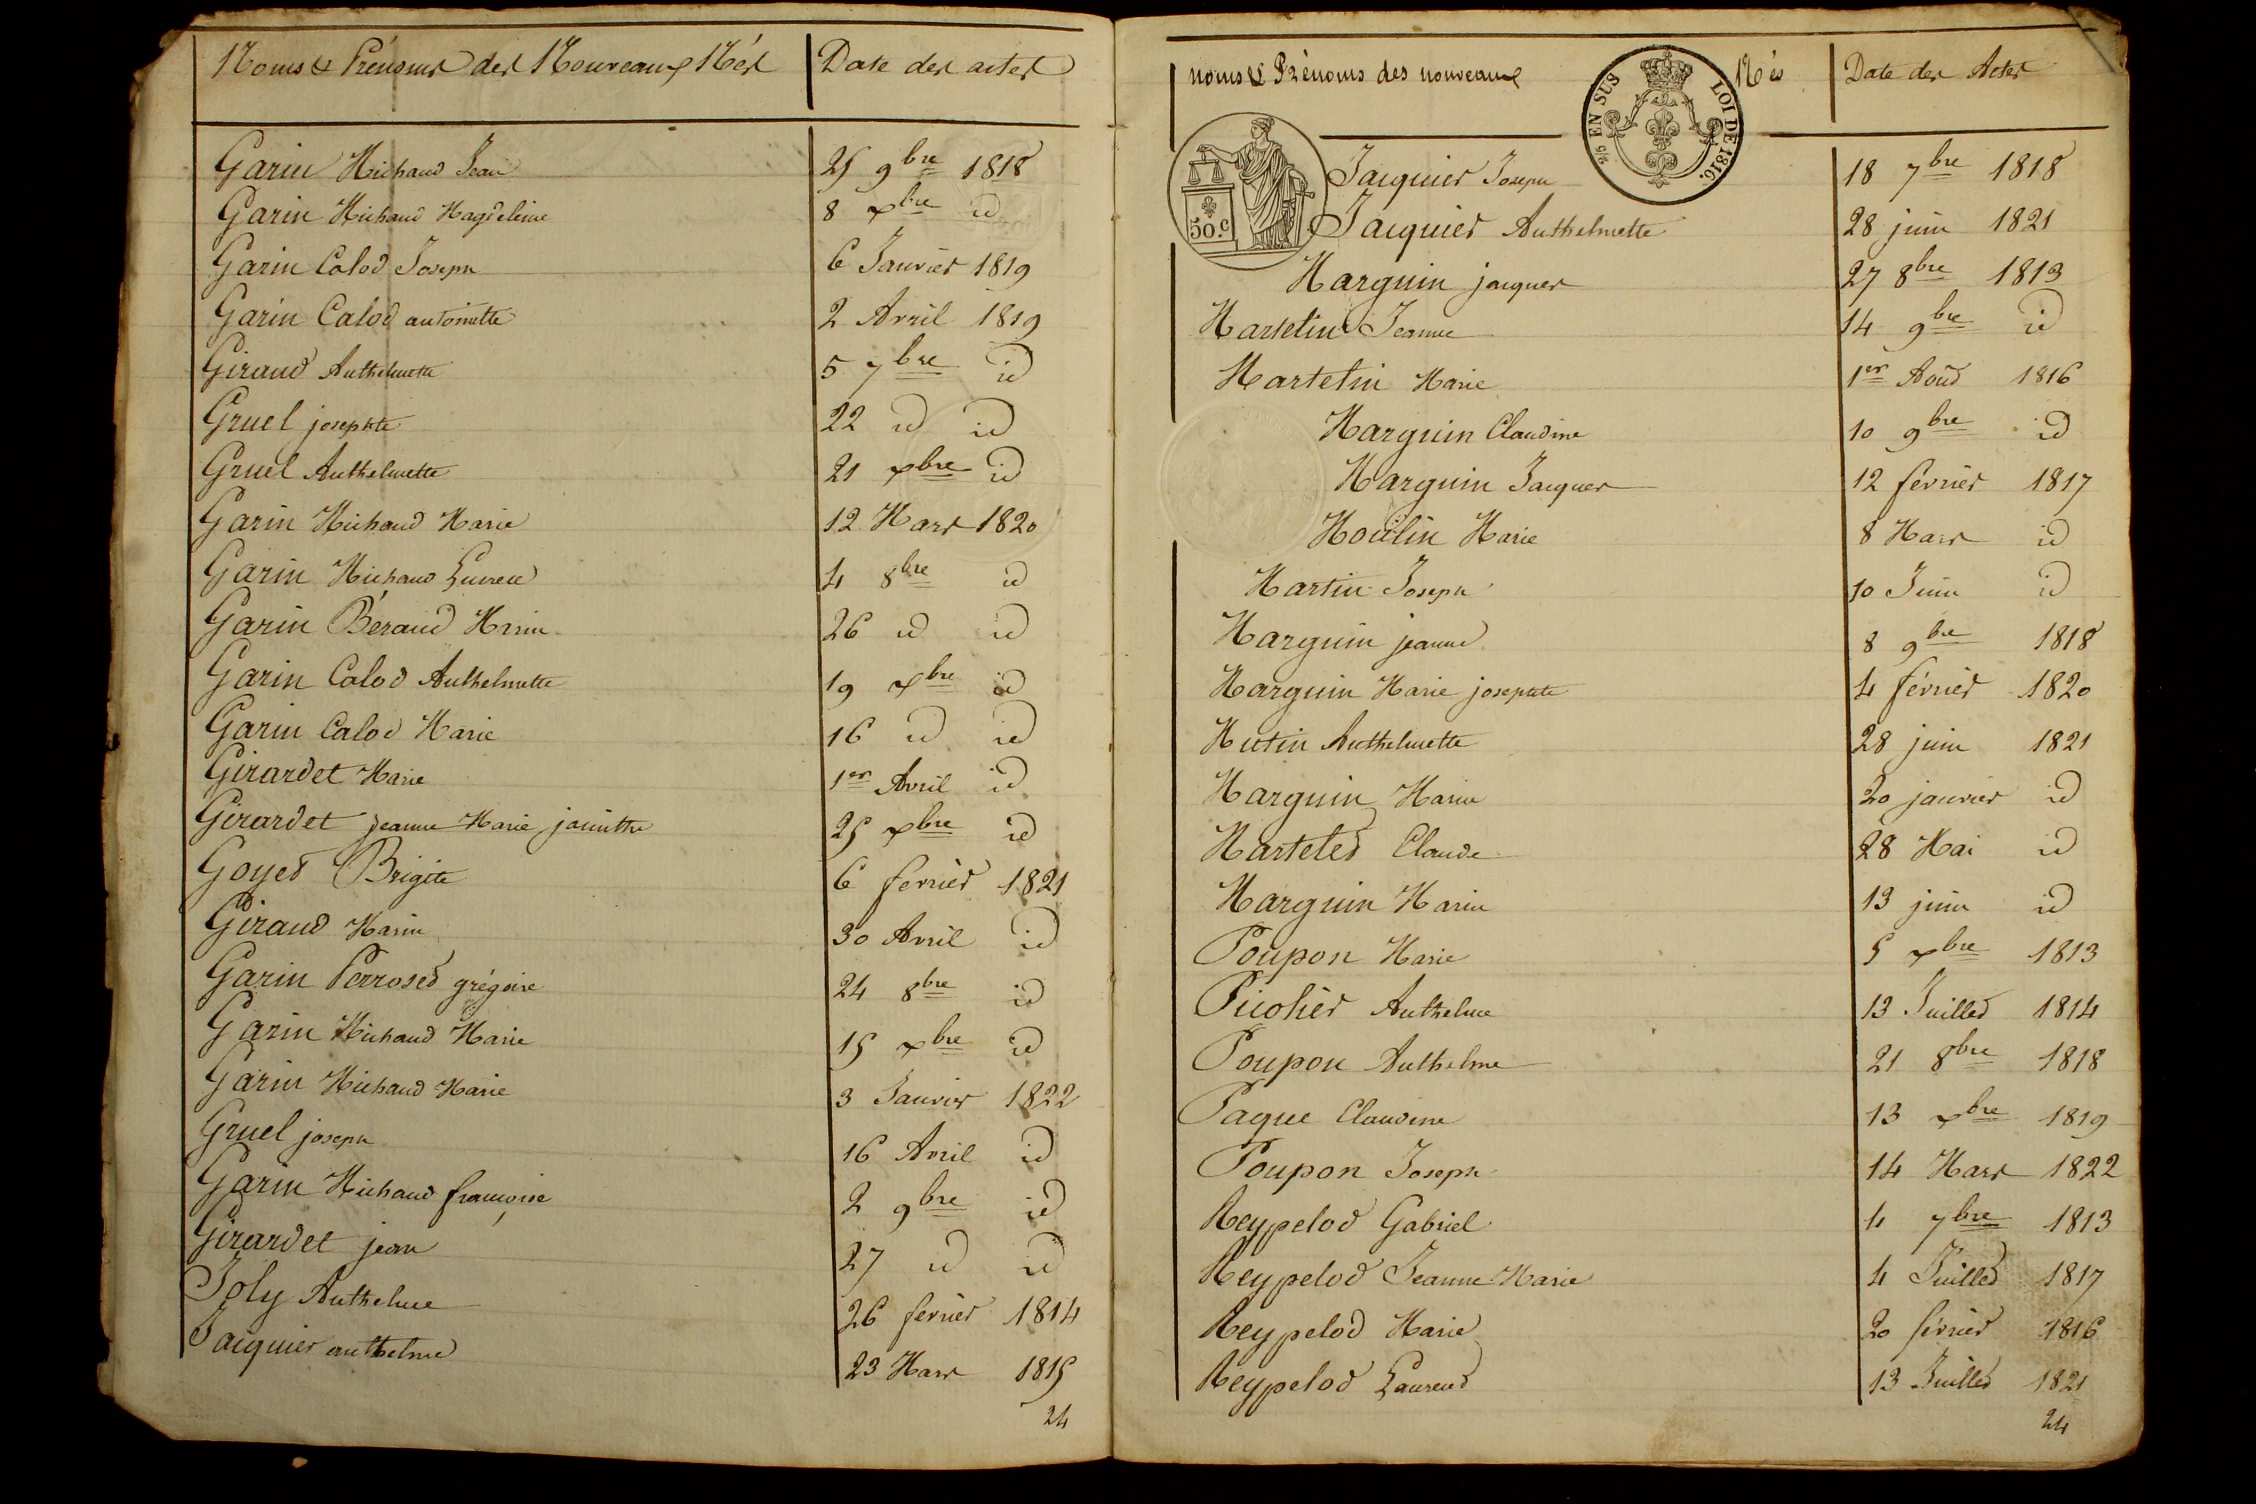 Noms & Prénoms des Nouveaux Nés Date des actes
Garin Michaud Jean 25 9bre 1818
Garin Michaud Magdeleine 8 xbre id
Garin Calod Joseph 6 Janvier 1819
Garin Calod antoinette 2 Avril 1819
Giraud Anthelmette 5 7bre id
Gruel josephte 22 id id
Gruel Anthelmette 21 xbre id
Garin Michaud Marie 12 Mars 1820
Garin Michaud Lucrece 4 8bre id
Garin Béraud Marie 26 id id
Garin Calod Anthelmette 19 xbre id
Garin Calod Marie 16 id id
Girardet Marie 1er Avril id
Girardet Jeanne Marie jacinthe 25 xbre id
Goyet Brigite 6 fevrier 1821
Giraud Marie 30 Avril id
Garin Perroset grégoire 24 8bre id
Garin Michaud Marie 15 xbre id
Garin Michaud Marie 3 Janvier 1822
Gruel joseph 16 Avril id
Garin Michaud françoise 2 9bre id
Girardet jean 27 id id
Joly Anthelme 26 fevrier 1814
Jacquier anthelme 23 Mars 1815
24
noms & Prénoms des nouveaux Nés Date des Actes
EN SUS LOI DE 1816.
50.c
Jacquier Joseph 18 7bre 1818
Jacquier Anthelmette 28 juin 1821
Marguin jacques 27 8bre 1813
Martelin Jeanne 14 9bre id
Martelin Marie 1er Août 1816
Marguin Claudine 10 9bre id
Marguin Jacques 12 février 1817
Moulin Marie 8 Mars id
Martin Joseph 10 Juin id
Marguin jeanne 8 9bre 1818
Marguin Marie josephte 4 février 1820
Mutin Anthelmette 28 juin 1821
Marguin Marie 20 janvier id
Martelet Claude 28 Mai id
Marguin Marie 13 juin id
Poupon Marie 5 xbre 1813
Picolier Anthelme 13 Juillet 1814
Poupon Anthelme 21 8bre 1818
Paque Claudine 13 xbre 1819
Poupon Joseph 14 Mars 1822
Reypelod Gabriel 4 7bre 1813
Reypelod Jeanne Marie 4 Juillet 1817
Reypelod Marie 20 février 1816
Reypelod Laurend 13 Juillet 1821
24